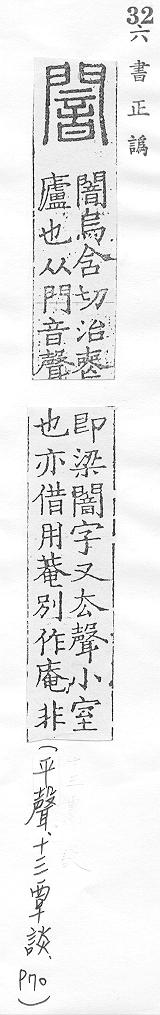 32
六書正譌
闇
闇烏含切治喪
廬也从門音聲
即梁闇字又厺聲小室
也亦借用菴別作庵非
(平聲、十三覃談、P70)